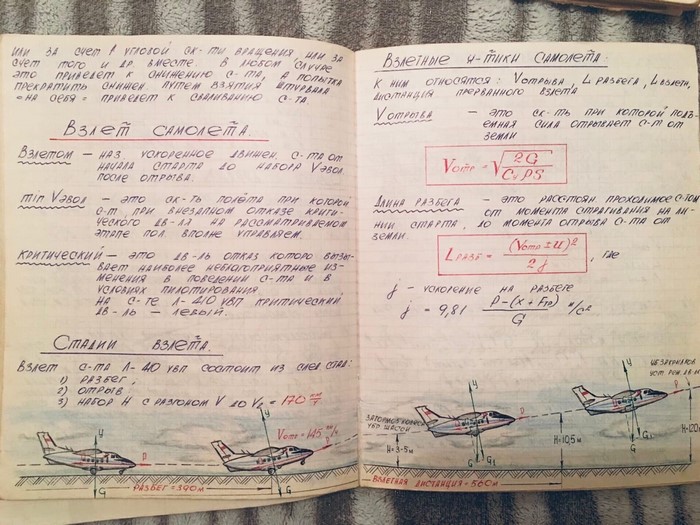 или за счет ↑ угловой ск-ти вращения, или за
счет того и др. вместе. В любом случае
это приведет к снижению с-та, а попытка
прекратить снижен. путем взятия штурвала
«на себя» приведет к сваливанию с-та.
Взлет самолета.
Взлетом — наз. ускоренное движен. с-та от
начала старта до набора Vэвол.
после отрыва.
min Vэвол — это ск-ть полёта при которой
с-т, при внезапном отказе крити-
ческого дв-ля на рассматриваемом
этапе пол. вполне управляем.
Критический — это дв-ль отказ которо вызы-
вает наиболее неблагоприятные из-
менения в поведении с-та и в
условиях пилотирования.
На с-те Л-410 УВП критический
дв-ль — левый.
Стадии взлета.
Взлет с-та Л-410 УВП состоит из след. стад:
1) разбег,
2) отрыв
3) набор H с разгоном V до V₂ = 170 км/ч
Vотр = 145 км/ч
y
P
G
y
P
G
Разбег = 390м
Взлетные х-тики самолета.
К ним относятся: Vотрыва, L разбега, L взлета,
дистанция прерванного взлета
Vотрыва — это ск-ть при которой подъ-
емная сила отрывает с-т от
земли
Vотр = √ 2G / Cy ρ S
Длина разбега — это расстоян. проходимое с-том
от момента страгивания на ли-
нии старта, до момента отрыва с-та от
земли.
L разб = (Vотр ± u)² / 2j , где
j — ускорение на разбеге
j = 9,81 P − (x + Fтр) / G м/с²
y
P
G
G₁
H = 3-5м
H = 10,5м
y
P
G
G₁
Взлетная дистанция = 560м